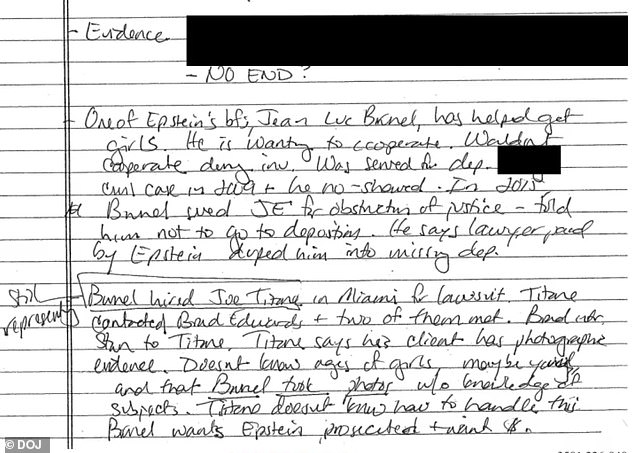 - Evidence
- NO END?
- One of Epstein's bfs, Jean Luc Brunel, has helped get
girls. He is wanting to cooperate. Wouldn't
cooperate during inv. Was served for dep.
civil case in 2009 + he no-showed. In 2015,
Brunel sued JE for obstruction of justice - told
him not to go to deposition. He says lawyer paid
by Epstein duped him into missing dep.
still represents
- Brunel hired Joe Titone in Miami for lawsuit. Titone
contacted Brad Edwards + two of them met. Brad
to Titone. Titone says his client has photographic
evidence. Doesn't know ages of girls maybe
and that Brunel took photos w/o knowledge of
subjects. Titone doesn't know how to handle this
Brunel wants Epstein prosecuted + want $.
© DOJ